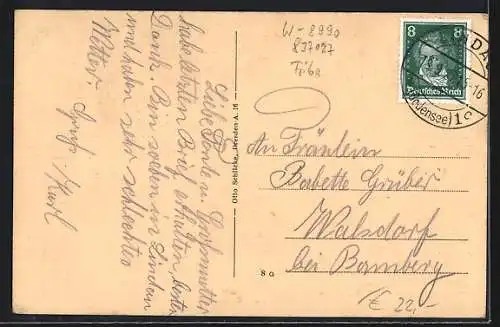 W-8990
837027
Liebe Tante u. Großmutter
habe letzten Brief erhalten, besten
Dank. Bin soeben in Lindau
und haben sehr schlechtes
Wetter
Gruß Karl
Otto Schlicke, Dresden A. 16
8 G
8 8
Deutsches Reich
(Bodensee) 1
16
An Fräulein
Babette Grüber
Walsdorf
bei Bamberg
€ 22,-